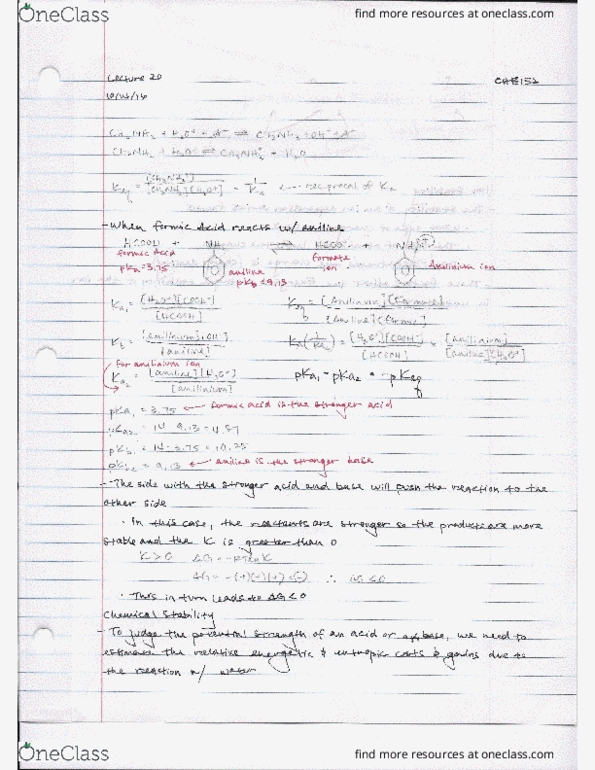 OneClass
find more resources at oneclass.com
Lecture 20
CHE152
CH3NH2 + H3O+ ⇌ CH3NH3+ + H2O
Keq = [CH3NH3+] / [CH3NH2][H3O+] = 1/Ka reciprocal of Ka
- When formic Acid reacts w/ aniline
HCOOH + NH2 ⇌ HCOO- + NH3+
formic Acid
pKa=3.75
aniline
pKb=9.13
formate
ion
Anilinium ion
Ka1 = [H3O+][COOH-] / [HCOOH]
Keq = [Anilinium][Formate] / [Aniline][Formic]
Kb = [anilinium][OH-] / [aniline]
Ka(1/Ka2) = [H3O+][COOH-] / [HCOOH] × [Anilinium] / [Aniline][H3O+]
for anilinium ion
Ka2 = [aniline][H3O+] / [anilinium]
pKa1 - pKa2 = pKeq
pKa1 = 3.75 ← formic acid is the stronger acid
pKa2 = 14 - 9.13 = 4.87
pKb1 = 14 - 3.75 = 10.25
pKb2 = 9.13 ← aniline is the stronger base
- The side with the stronger acid and base will push the reaction to the
other side
· In this case, the reactants are stronger so the products are more
stable and the K is greater than 0
K>0 ΔG=-RTlnK
∴ ΔG<0
· This in turn leads to ΔG<0
Chemical Stability
- To judge the potential strength of an acid or a base, we need to
estimate the relative energetic & entropic costs & gains due to
the reaction w/ water
OneClass
find more resources at oneclass.com